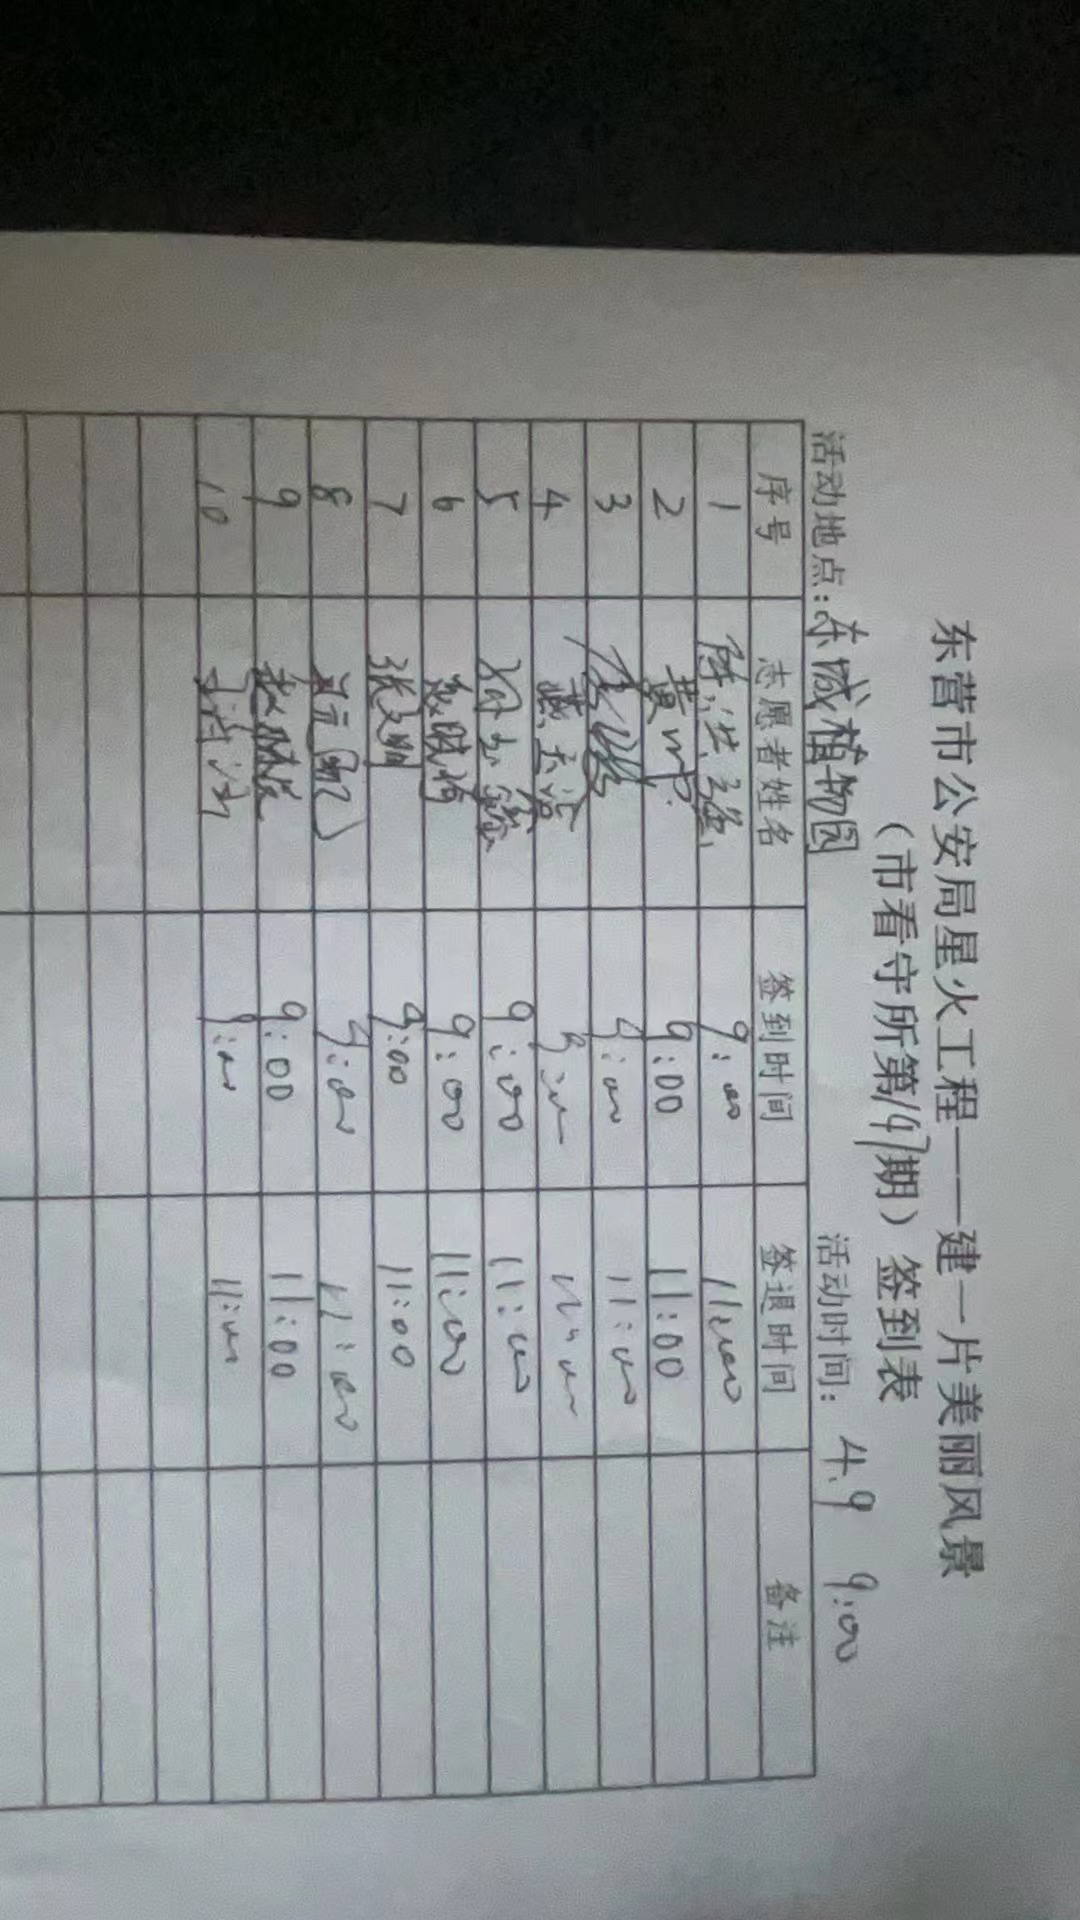 东营市公安局星火工程——建一片美丽风景
（市看守所第197期）签到表
活动地点：东城植物园 活动时间：4.9 9:00
序号 志愿者姓名 签到时间 签退时间 备注
1 9:00 11:00
2 9:00 11:00
3 9:00 11:00
4 9:00 11:00
5 9:00 11:00
6 9:00 11:00
7 张文明 9:00 11:00
8 9:00 11:00
9 9:00 11:00
10 9:00 11:00